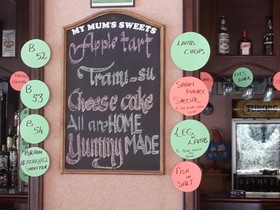 MY MUM'S SWEETS
Apple tart
Trami-su
Cheese cake
All are HOME
Yummy MADE
B
52
B
53
B
54
LAMB
CHOPS
SPECIAL
LEG of
LAMB
FISH IN
SALT